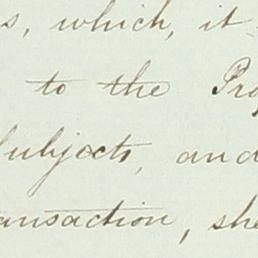 s, which, it
to the Pro
Subjects, and
ansaction, she